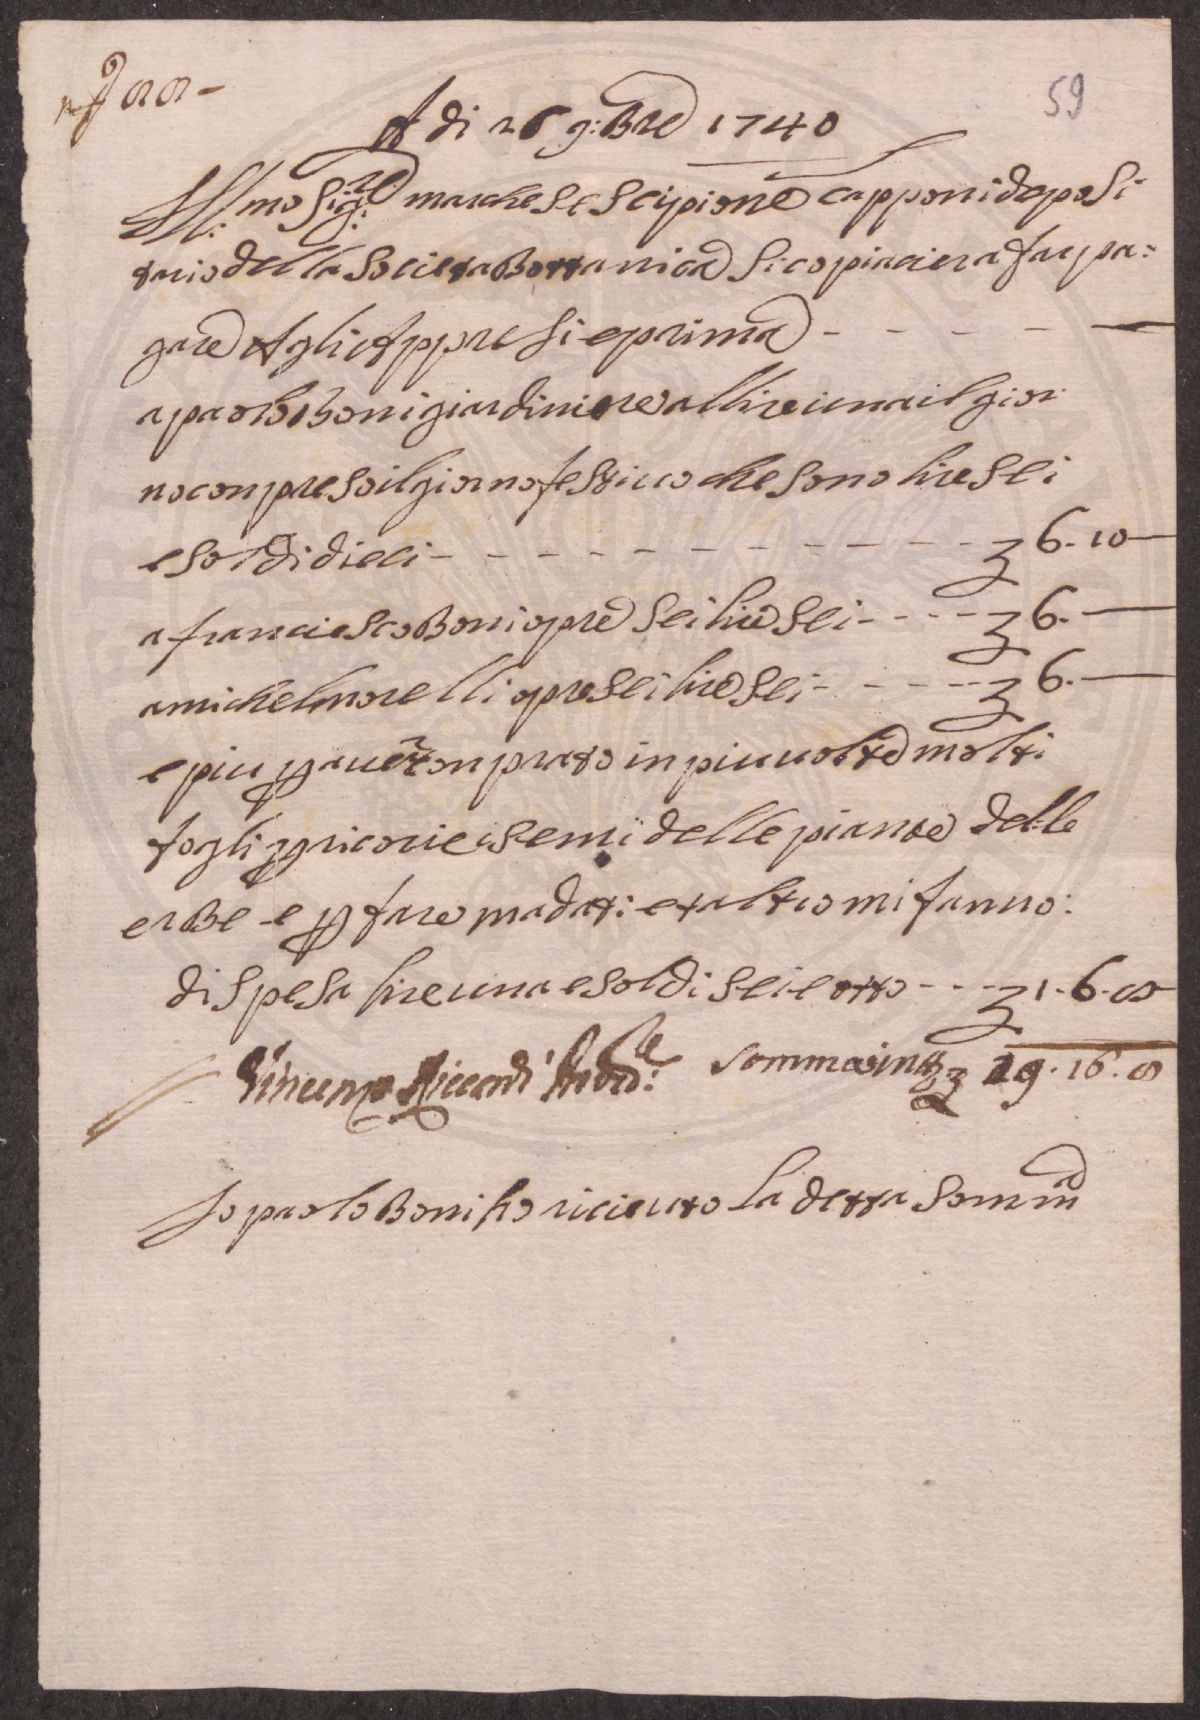 59
A di 26 9:Bre 1740
Ill:mo Sig:re marchese scipione capponi deposi
tario della Societa Bottanica Si copiaciera far pa:
gare Agli Appresi e prima - - - - -
a paolo Boni giardiniere a llire una il gior
no conpreso il giorno festiuo che sono lire sei
e soldi dieci - - - - - - - - - - 6.10
a franciesco Boni opre sei lire sei - - - - 6.
a michel morelli opre sei lire sei - - - - 6.
e piu p auer conprato in piu uolte molti
fogli p ricorre i semi delle piante delle
erbe e p fare madati: et altro mi fanno:
di spesa lire una e soldi sei e otto - - - 1.6.8
Vincenzo Riccardi
somma in tt 19.16.8
Io paolo Boni ho riceuto La detta Somma